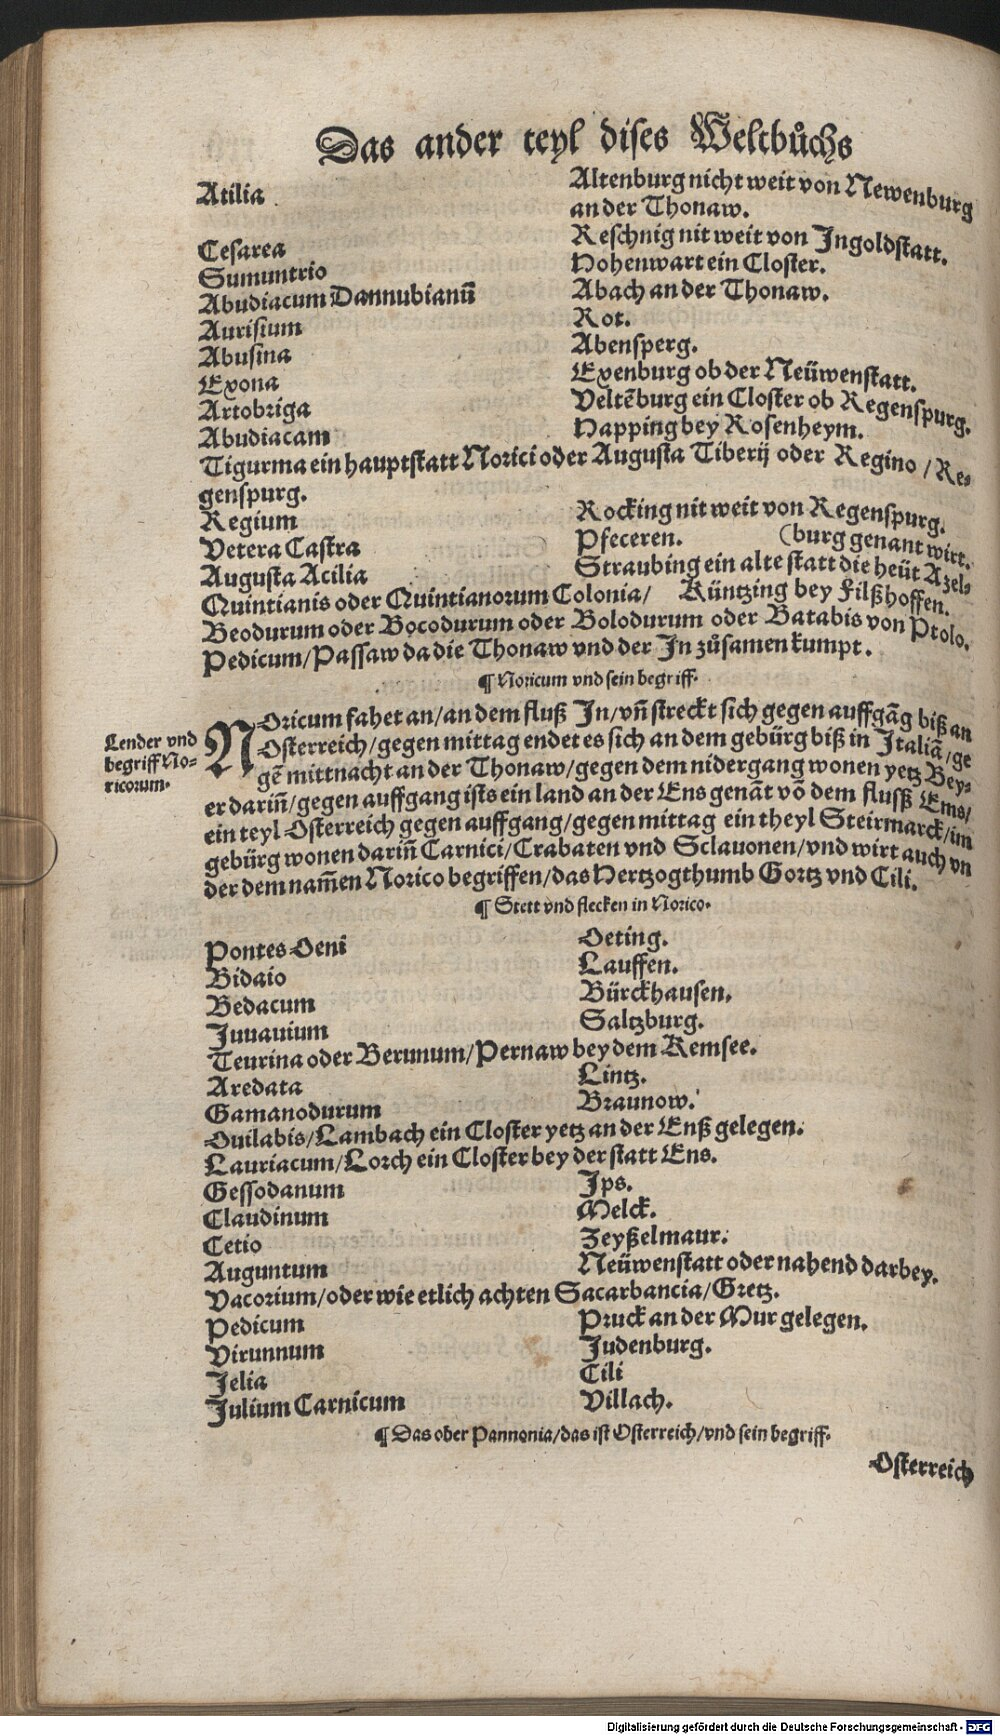 Das ander teyl dises Weltbůchs
Atilia Altenburg nicht weit von Newenburg
an der Thonaw.
Cesarea Reschnig nit weit von Ingoldstatt.
Sumuntrio Hohenwart ein Closter.
Abudiacum Dannubianū Abach an der Thonaw.
Aurisium Rot.
Abusina Abensperg.
Exona Exenburg ob der Neüwenstatt.
Artobriga Veltēburg ein Closter ob Regenspurg.
Abudiacam Happing bey Rosenheym.
Tigurma ein hauptstatt Norici oder Augusta Tiberij oder Regino / Re-
genspurg.
Regium Rocking nit weit von Regenspurg.
Vetera Castra Pfeceren. (burg genant wirt.
Augusta Acilia Straubing ein alte statt die heüt Azel-
Quintianis oder Quintianorum Colonia / Küntzing bey Filßhoffen.
Beodurum oder Bocodurum oder Bolodurum oder Batabis von Ptolo.
Pedicum / Passaw da die Thonaw vnd der In zůsamen kumpt.
¶ Noricum vnd sein begriff.
Lender vnd
begriff No-
ricorum.
NOricum fahet an / an dem fluß In / vñ streckt sich gegen auffgāg biß an
Osterreich / gegen mittag endet es sich an dem gebürg biß in Italiā / ge
gē mittnacht an der Thonaw / gegen dem nidergang wonen yetz Bey-
er dariñ / gegen auffgang ists ein land an der Ens genāt vō dem flusß Ems /
ein teyl Osterreich gegen auffgang / gegen mittag ein theyl Steirmarck / im
gebürg wonen dariñ Carnici / Crabaten vnd Sclauonen / vnd wirt auch vn
der dem nam̄en Norico begriffen / das Hertzogthumb Gortz vnd Cili.
¶ Stett vnd flecken in Norico.
Pontes Oeni Oeting.
Bidaio Lauffen.
Bedacum Bürckhausen.
Juuauium Saltzburg.
Teurina oder Berunum / Pernaw bey dem Kemsee.
Aredata Lintz.
Gamanodurum Braunow.
Ouilabis / Lambach ein Closter yetz an der Enß gelegen.
Lauriacum / Lorch ein Closter bey der statt Ens.
Gessodanum Ips.
Claudinum Melck.
Cetio Zeyßelmaur.
Auguntum Neüwenstatt oder nahend darbey.
Vacorium / oder wie etlich achten Sacarbancia / Gretz.
Pedicum Pruck an der Mur gelegen.
Virunnum Judenburg.
Jelia Cili
Julium Carnicum Villach.
¶ Das ober Pannonia / das ist Osterreich / vnd sein begriff.
Osterreich
Digitalisierung gefördert durch die Deutsche Forschungsgemeinschaft - DFG